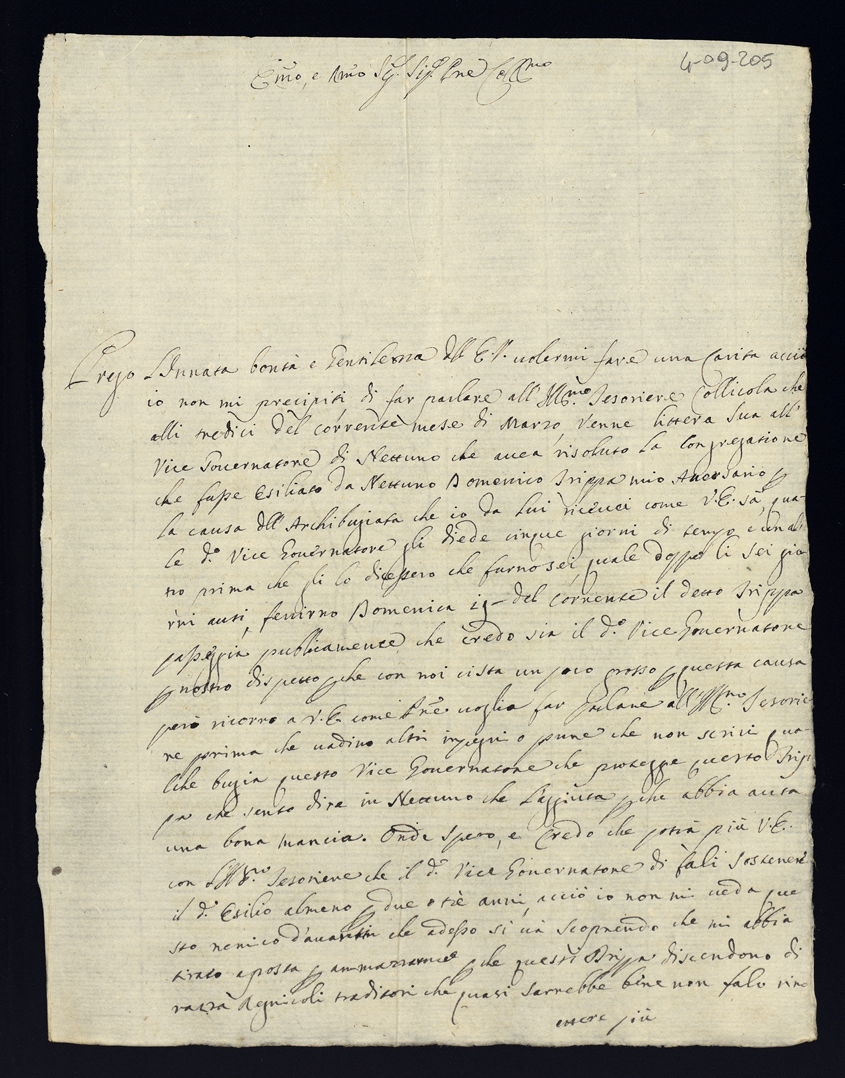 4-09-205
Em̃o, e Rm̃o Sig.r Sig.r Pne Col.mo
Prego L'Innata bontà e Gentilezza dell' E.V. volermi fare una Carità acciò
io non mi precipiti di far parlare all' Ill.mo Tesoriere Collicola che
alli tredici del corrente mese di Marzo venne littera sua all'
Vice Governatore di Nettuno che avea risoluto la Congregatione
che fusse Esiliato da Nettuno Domenico Trippa mio Aversario p
la causa dell' Archibugiata che io da lui riceuei come V.E. sà, qua-
le d.o Vice Governatore gli diede cinque giorni di tempo e un al
tro prima che gli lo dicessero che furno sei quale doppo li sei gio
rni auti, fenirno Domenica 19 del corrente il detto Trippa
passeggia publicamente che credo sia il d.o Vice Governatore
p nostro dispetto p che con noi ci sta un poco grosso p questa causa
però ricorro a V.E. come Pne voglia far parlare all' Ill.mo Tesorie
re prima che vadino altri impegni o pure che non scrivi qua
lche bugia questo Vice Governatore che protegge questo Trip
pa che sento dira in Nettuno che l'aggiuta p che abbia auta
una bona mancia. Onde spero, e credo che potrà più V.E.
con l'Ill.mo Tesoriere che il d.o Vice Governatore di fali sostenere
il d.o Esilio almeno p due o tre anni, acciò io non mi veda que
sto nemico d'avanti che adesso si và scoprendo che mi abbia
tirato aposta p ammazzarme p che questi Trippa discendono di
razza Regnicoli traditori che quasi sarrebbe bene non falo rim
ettere più